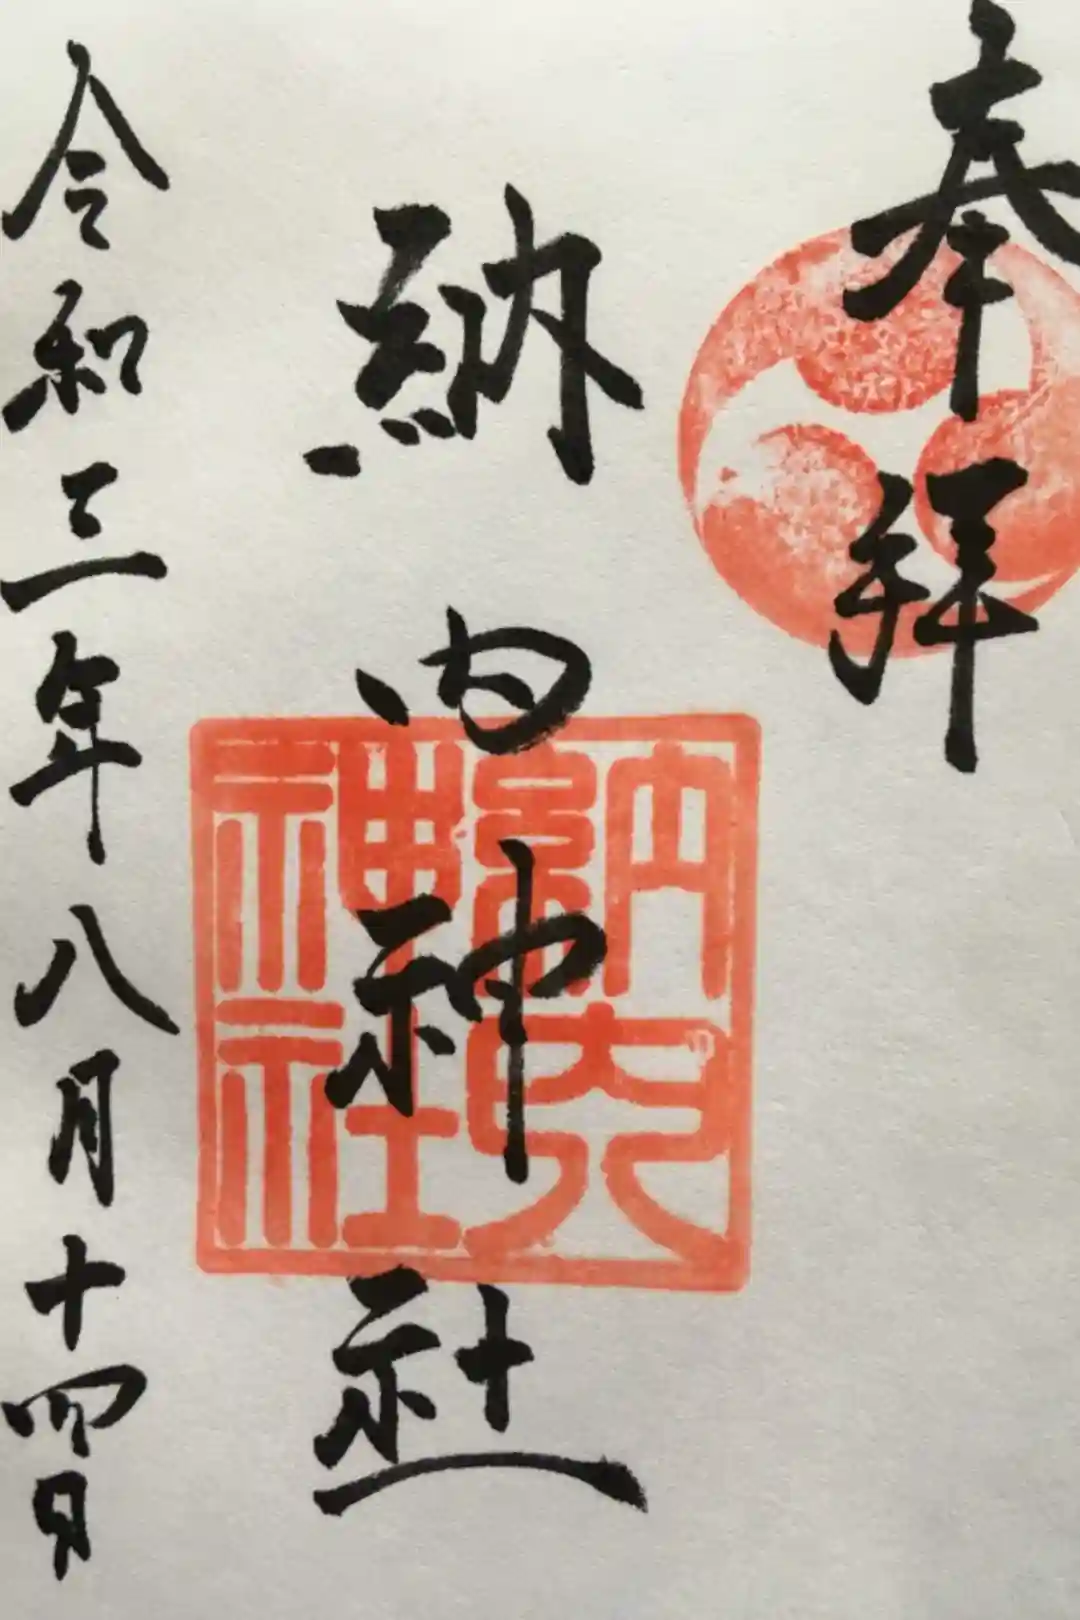 奉拝
納内神社
納内神社
令和三年八月十四日